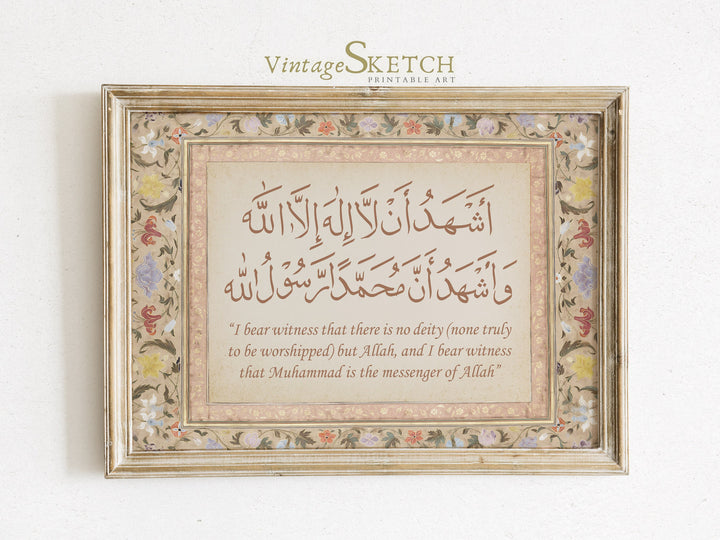 VintageSKETCH
PRINTABLE ART
أَشْهَدُ أَنْ لَّا إِلٰهَ إِلَّا اللّٰه
وَأَشْهَدُ أَنَّ مُحَمَّدًا رَّسُوْلُ اللّٰه
“I bear witness that there is no deity (none truly
to be worshipped) but Allah, and I bear witness
that Muhammad is the messenger of Allah”